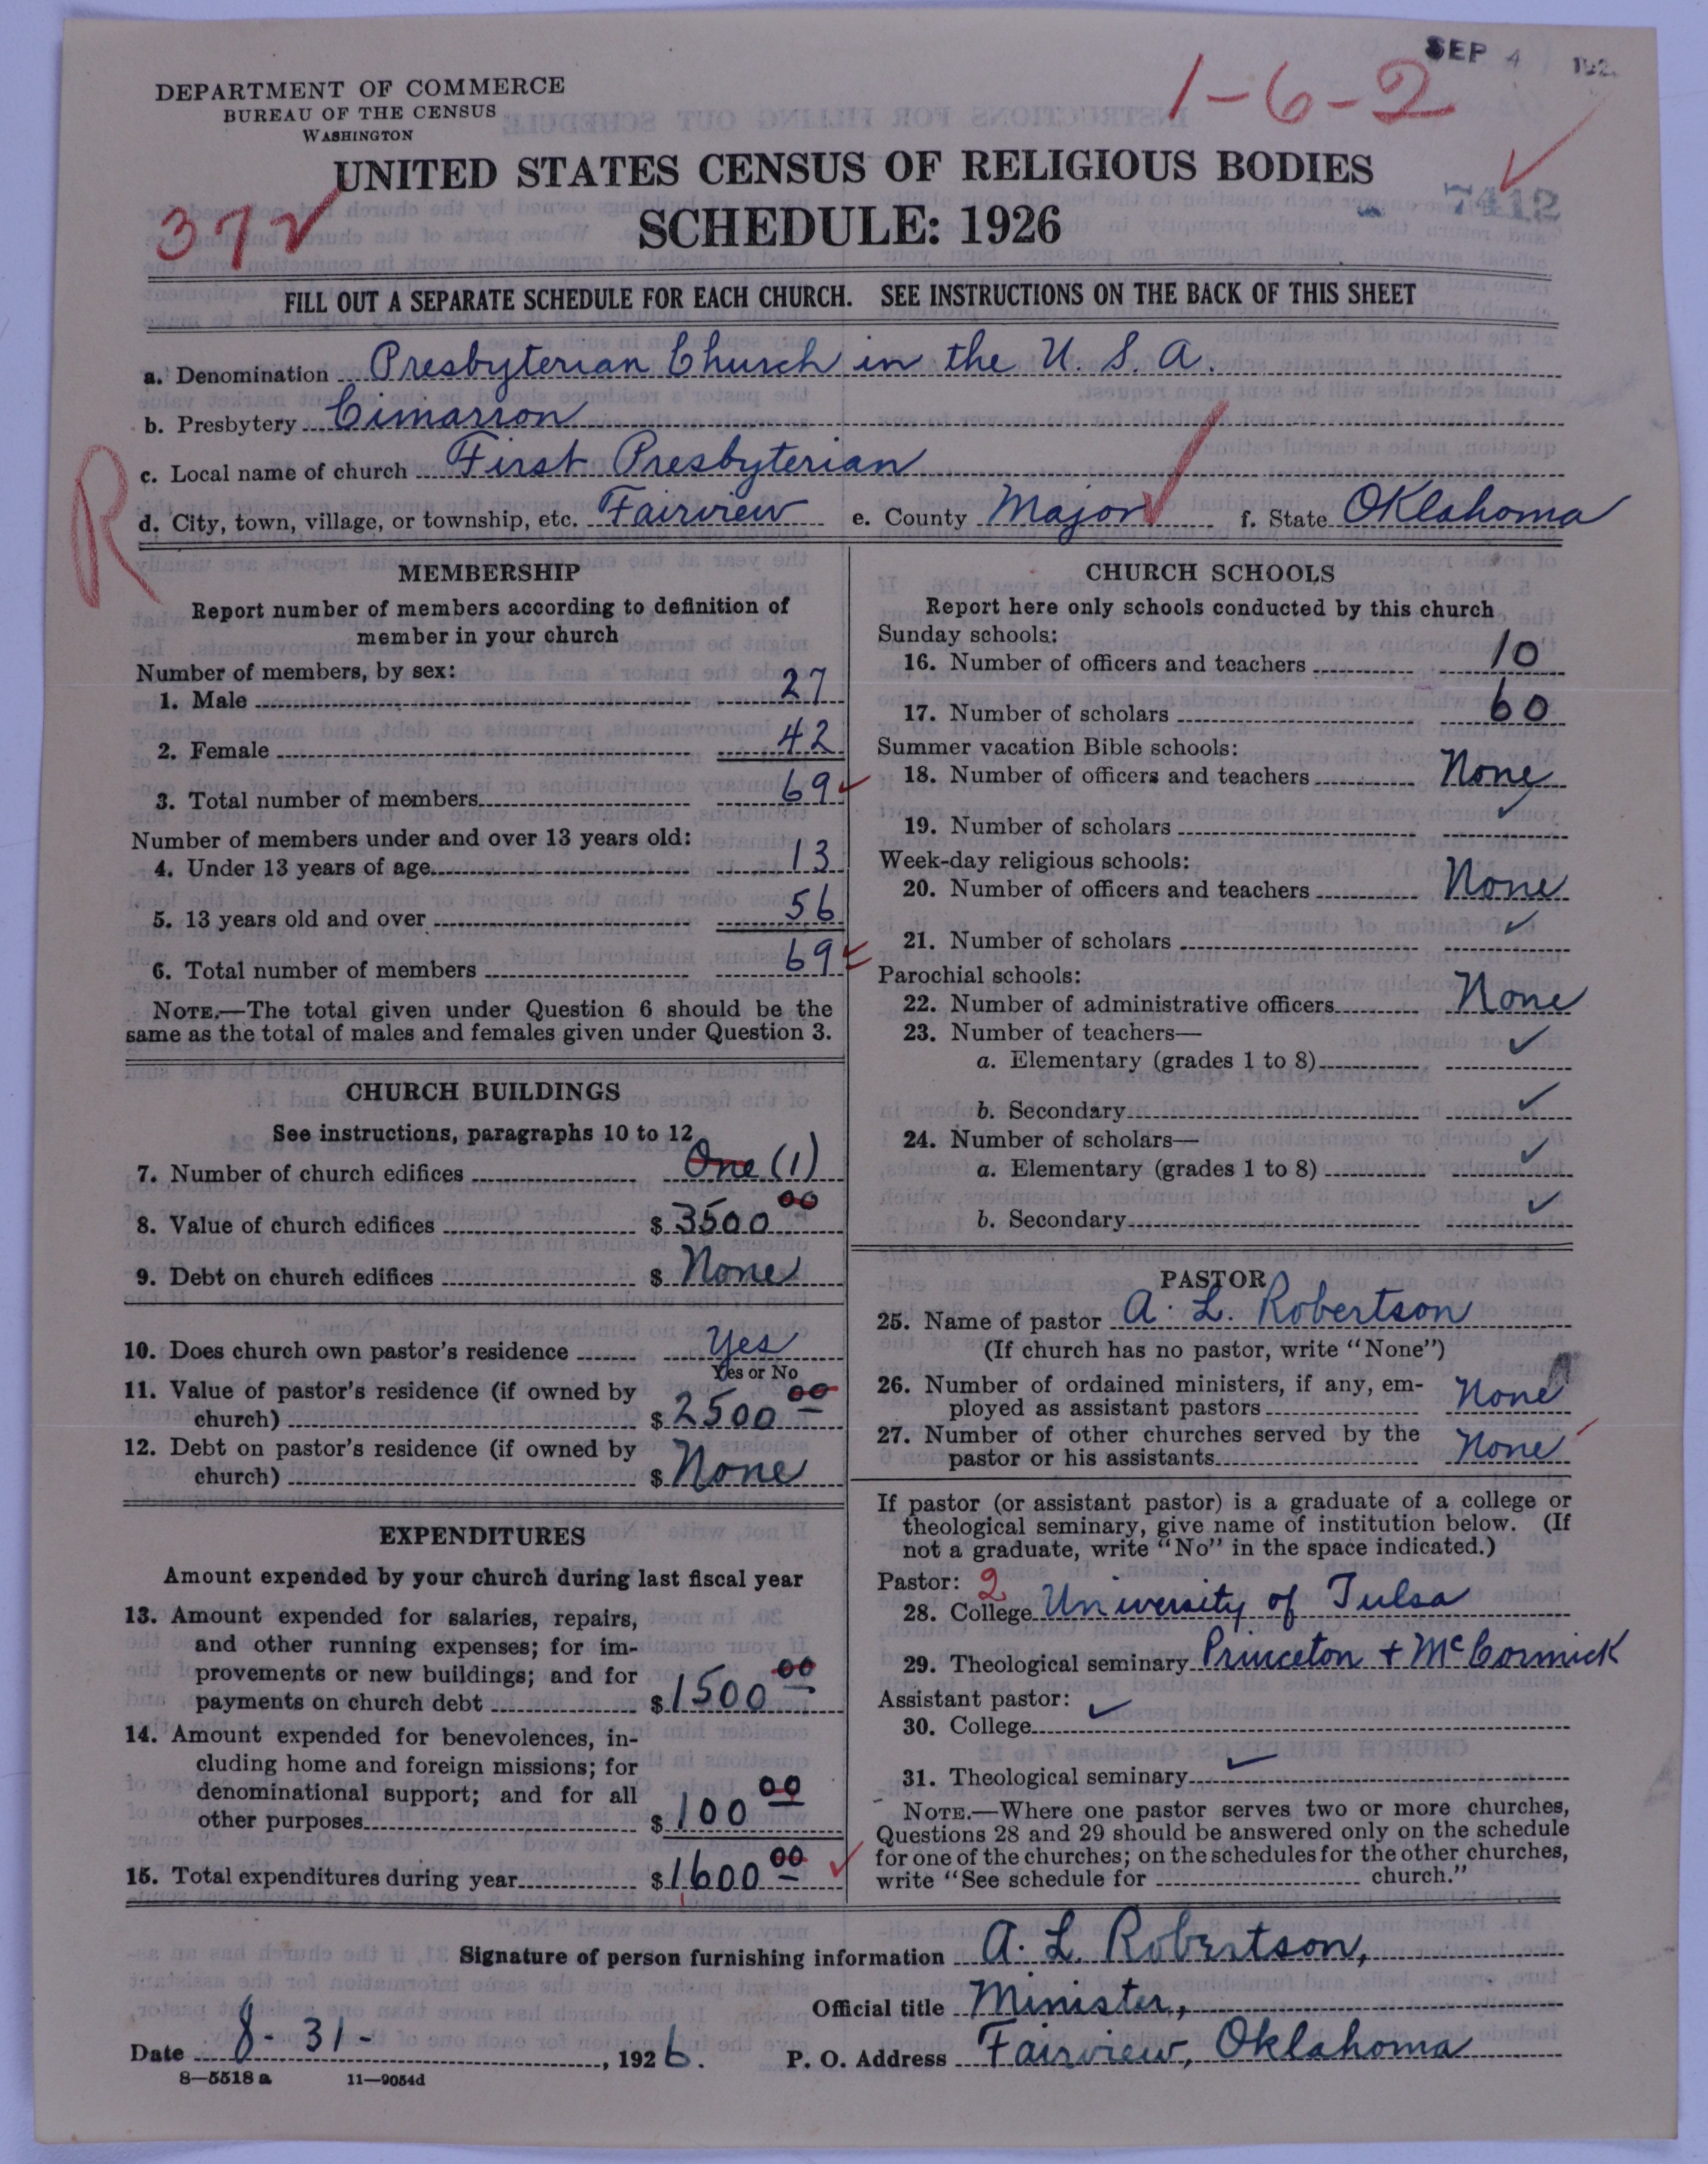 SEP 4 192
1-6-2
DEPARTMENT OF COMMERCE
BUREAU OF THE CENSUS
WASHINGTON
UNITED STATES CENSUS OF RELIGIOUS BODIES
7412
37
SCHEDULE: 1926
FILL OUT A SEPARATE SCHEDULE FOR EACH CHURCH. SEE INSTRUCTIONS ON THE BACK OF THIS SHEET
a. Denomination Presbyterian Church in the U. S. A.
b. Presbytery Cimarron
c. Local name of church First Presbyterian
R
d. City, town, village, or township, etc. Fairview e. County Major f. State Oklahoma
MEMBERSHIP
Report number of members according to definition of
member in your church
Number of members, by sex:
1. Male 27
2. Female 42
3. Total number of members 69
Number of members under and over 13 years old:
4. Under 13 years of age 13
5. 13 years old and over 56
6. Total number of members 69
NOTE.—The total given under Question 6 should be the
same as the total of males and females given under Question 3.
CHURCH BUILDINGS
See instructions, paragraphs 10 to 12
7. Number of church edifices One (1)
8. Value of church edifices $3500 00
9. Debt on church edifices $ None
10. Does church own pastor's residence Yes
Yes or No
11. Value of pastor's residence (if owned by
church) $2500 00
12. Debt on pastor's residence (if owned by
church) $ None
EXPENDITURES
Amount expended by your church during last fiscal year
13. Amount expended for salaries, repairs,
and other running expenses; for im-
provements or new buildings; and for
payments on church debt $1500 00
14. Amount expended for benevolences, in-
cluding home and foreign missions; for
denominational support; and for all
other purposes $100 00
15. Total expenditures during year $1600 00
CHURCH SCHOOLS
Report here only schools conducted by this church
Sunday schools:
16. Number of officers and teachers 10
17. Number of scholars 60
Summer vacation Bible schools:
18. Number of officers and teachers None
19. Number of scholars
Week-day religious schools:
20. Number of officers and teachers None
21. Number of scholars
Parochial schools:
22. Number of administrative officers None
23. Number of teachers—
a. Elementary (grades 1 to 8)
b. Secondary
24. Number of scholars—
a. Elementary (grades 1 to 8)
b. Secondary
PASTOR
25. Name of pastor A. L. Robertson
(If church has no pastor, write "None")
26. Number of ordained ministers, if any, em-
ployed as assistant pastors None
27. Number of other churches served by the
pastor or his assistants None
If pastor (or assistant pastor) is a graduate of a college or
theological seminary, give name of institution below. (If
not a graduate, write "No" in the space indicated.)
Pastor: 2
28. College University of Tulsa
29. Theological seminary Princeton + McCormick
Assistant pastor:
30. College
31. Theological seminary
NOTE.—Where one pastor serves two or more churches,
Questions 28 and 29 should be answered only on the schedule
for one of the churches; on the schedules for the other churches,
write "See schedule for church."
Signature of person furnishing information A. L. Robertson,
Official title Minister,
Date 8-31-, 1926. P. O. Address Fairview, Oklahoma
8—5518 a 11—9054d